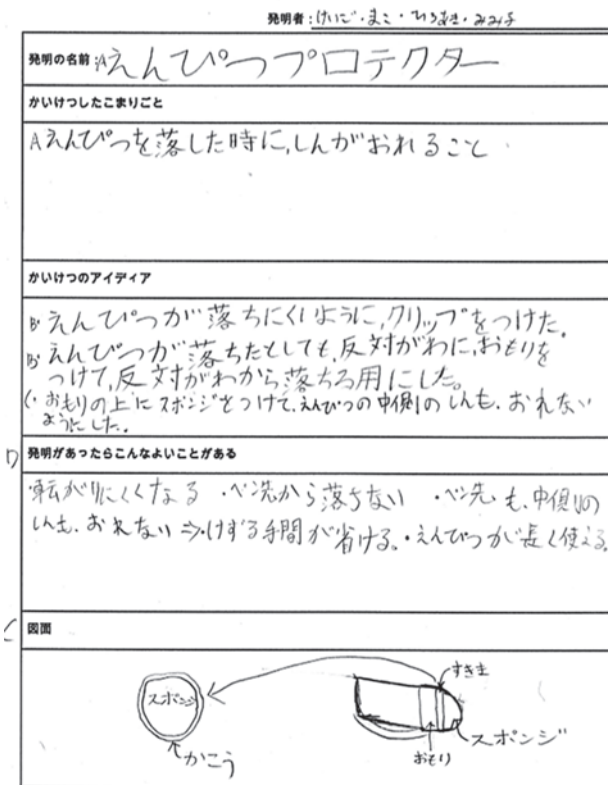 発明者：けいご・まこ・ひろあき・みみ子
発明の名前：Aえんぴつプロテクター
かいけつしたこまりごと
Aえんぴつを落した時に,しんがおれること
かいけつのアイディア
B・えんぴつが落ちにくいように,クリップをつけた。
B・えんぴつが落ちたとしても,反対がわに,おもりを
つけて,反対がわから落ちる用にした。
C・おもりの上にスポンジをつけて,えんぴつの中側のしんも,おれない
ようにした。
D 発明があったらこんなよいことがある
・転がりにくくなる ・ペン先から落ちない ・ペン先も,中側の
しんも,おれない⇒けずる手間が省ける。・えんぴつが長く使える。
C 図面
スポンジ
かこう
すきま
スポンジ
おもり